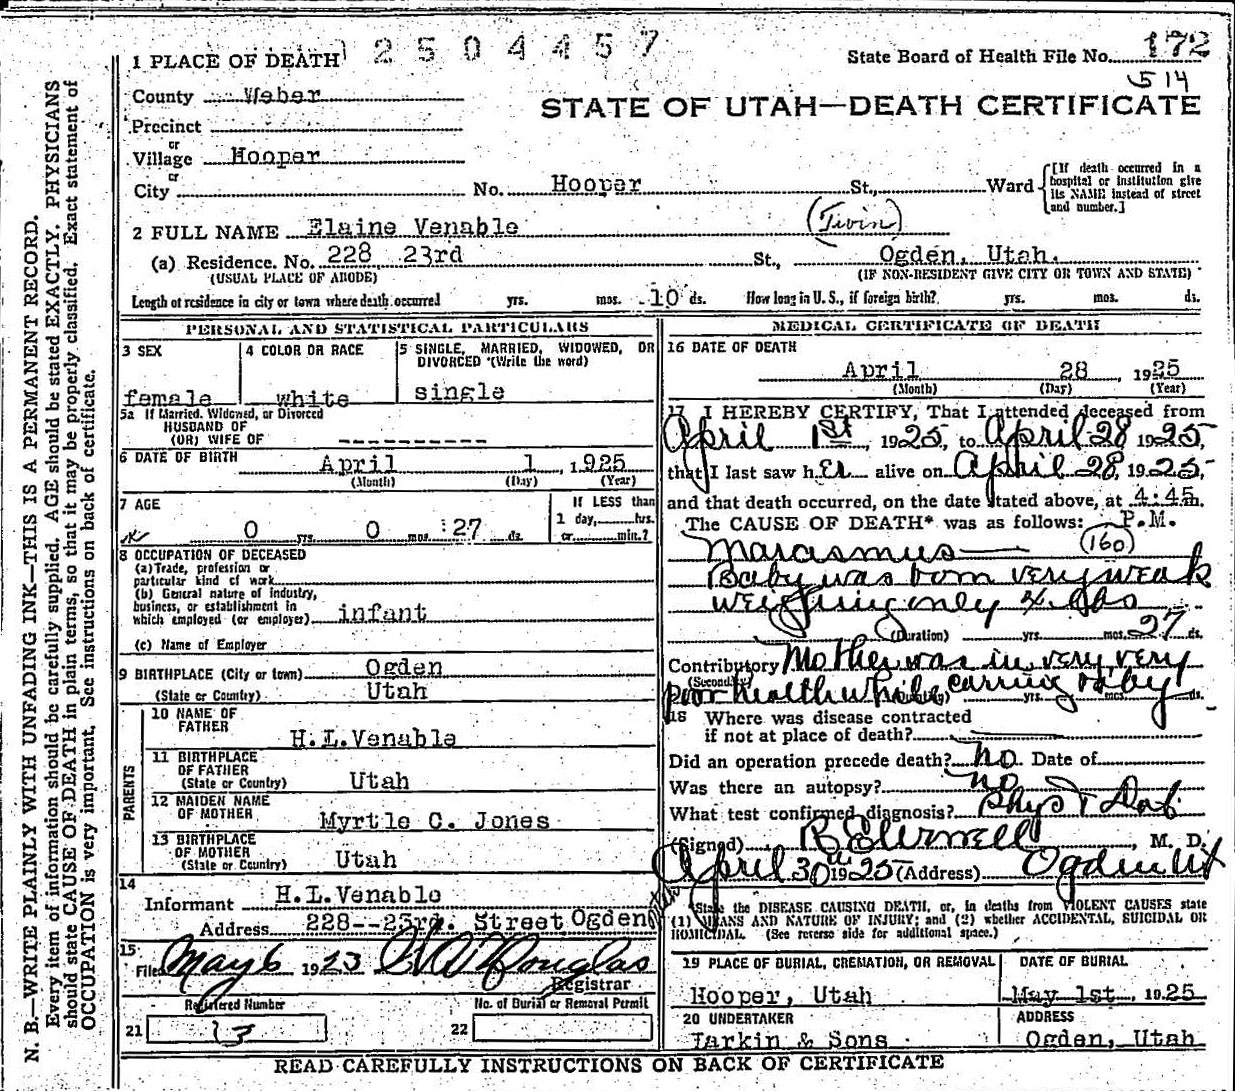 2504457
State Board of Health File No. 172
514
1 PLACE OF DEATH
County Weber
STATE OF UTAH—DEATH CERTIFICATE
Precinct
or
Village Hooper
or
City No. Hooper St., Ward
[If death occurred in a hospital or institution give its NAME instead of street and number.]
2 FULL NAME Elaine Venable (Twin)
(a) Residence. No. 228 23rd St., Ogden, Utah.
(USUAL PLACE OF ABODE) (IF NON-RESIDENT GIVE CITY OR TOWN AND STATE)
Length of residence in city or town where death occurred yrs. mos. 10 ds. How long in U. S., if foreign birth? yrs. mos. ds.
PERSONAL AND STATISTICAL PARTICULARS
3 SEX
female
4 COLOR OR RACE
white
5 SINGLE, MARRIED, WIDOWED, OR DIVORCED (Write the word)
single
5a If Married, Widowed, or Divorced
HUSBAND OF
(OR) WIFE OF ----------
6 DATE OF BIRTH April 1, 1925
(Month) (Day) (Year)
7 AGE
0 yrs. 0 mos. 27 ds.
If LESS than
1 day, hrs.
or min.?
8 OCCUPATION OF DECEASED
(a) Trade, profession or
particular kind of work
(b) General nature of industry,
business, or establishment in
which employed (or employer) infant
(c) Name of Employer
9 BIRTHPLACE (City or town) Ogden
(State or Country) Utah
PARENTS
10 NAME OF
FATHER H.L.Venable
11 BIRTHPLACE
OF FATHER
(State or Country) Utah
12 MAIDEN NAME
OF MOTHER Myrtle C. Jones
13 BIRTHPLACE
OF MOTHER
(State or Country) Utah
14
Informant H.L.Venable
Address 228--23rd. Street Ogden
15
Filed May 6 1923 Douglas
Registrar
Registered Number
21 13
No. of Burial or Removal Permit
22
MEDICAL CERTIFICATE OF DEATH
16 DATE OF DEATH
April 28, 1925
(Month) (Day) (Year)
17 I HEREBY CERTIFY, That I attended deceased from
April 1st, 1925, to April 28 1925,
that I last saw her alive on April 28, 1925,
and that death occurred, on the date stated above, at 4:45 m.
The CAUSE OF DEATH* was as follows: P.M.
Marasmus (160)
Baby was born very weak
weighing only 4 lbs
(Duration) yrs. mos. 27 ds.
Contributory Mother was in very very
(Secondary)
poor health while carring baby
(Duration) yrs. mos. ds.
18 Where was disease contracted
if not at place of death?
Did an operation precede death? no Date of
Was there an autopsy? no
What test confirmed diagnosis? Phys &
(Signed) M. D.
April 30th 1925 (Address) Ogden Ut
State the DISEASE CAUSING DEATH, or, in deaths from VIOLENT CAUSES state
(1) MEANS AND NATURE OF INJURY; and (2) whether ACCIDENTAL, SUICIDAL OR
HOMICIDAL. (See reverse side for additional space.)
19 PLACE OF BURIAL, CREMATION, OR REMOVAL
Hooper, Utah
DATE OF BURIAL
May 1st, 1925
20 UNDERTAKER
Larkin & Sons
ADDRESS
Ogden, Utah
READ CAREFULLY INSTRUCTIONS ON BACK OF CERTIFICATE
N. B.—WRITE PLAINLY WITH UNFADING INK—THIS IS A PERMANENT RECORD.
Every item of information should be carefully supplied. AGE should be stated EXACTLY. PHYSICIANS
should state CAUSE OF DEATH in plain terms, so that it may be properly classified. Exact statement of
OCCUPATION is very important. See instructions on back of certificate.